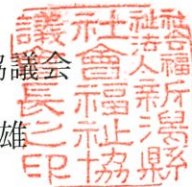 協議会
雄
社会福祉法人新潟縣
社會福祉協
議會長之印